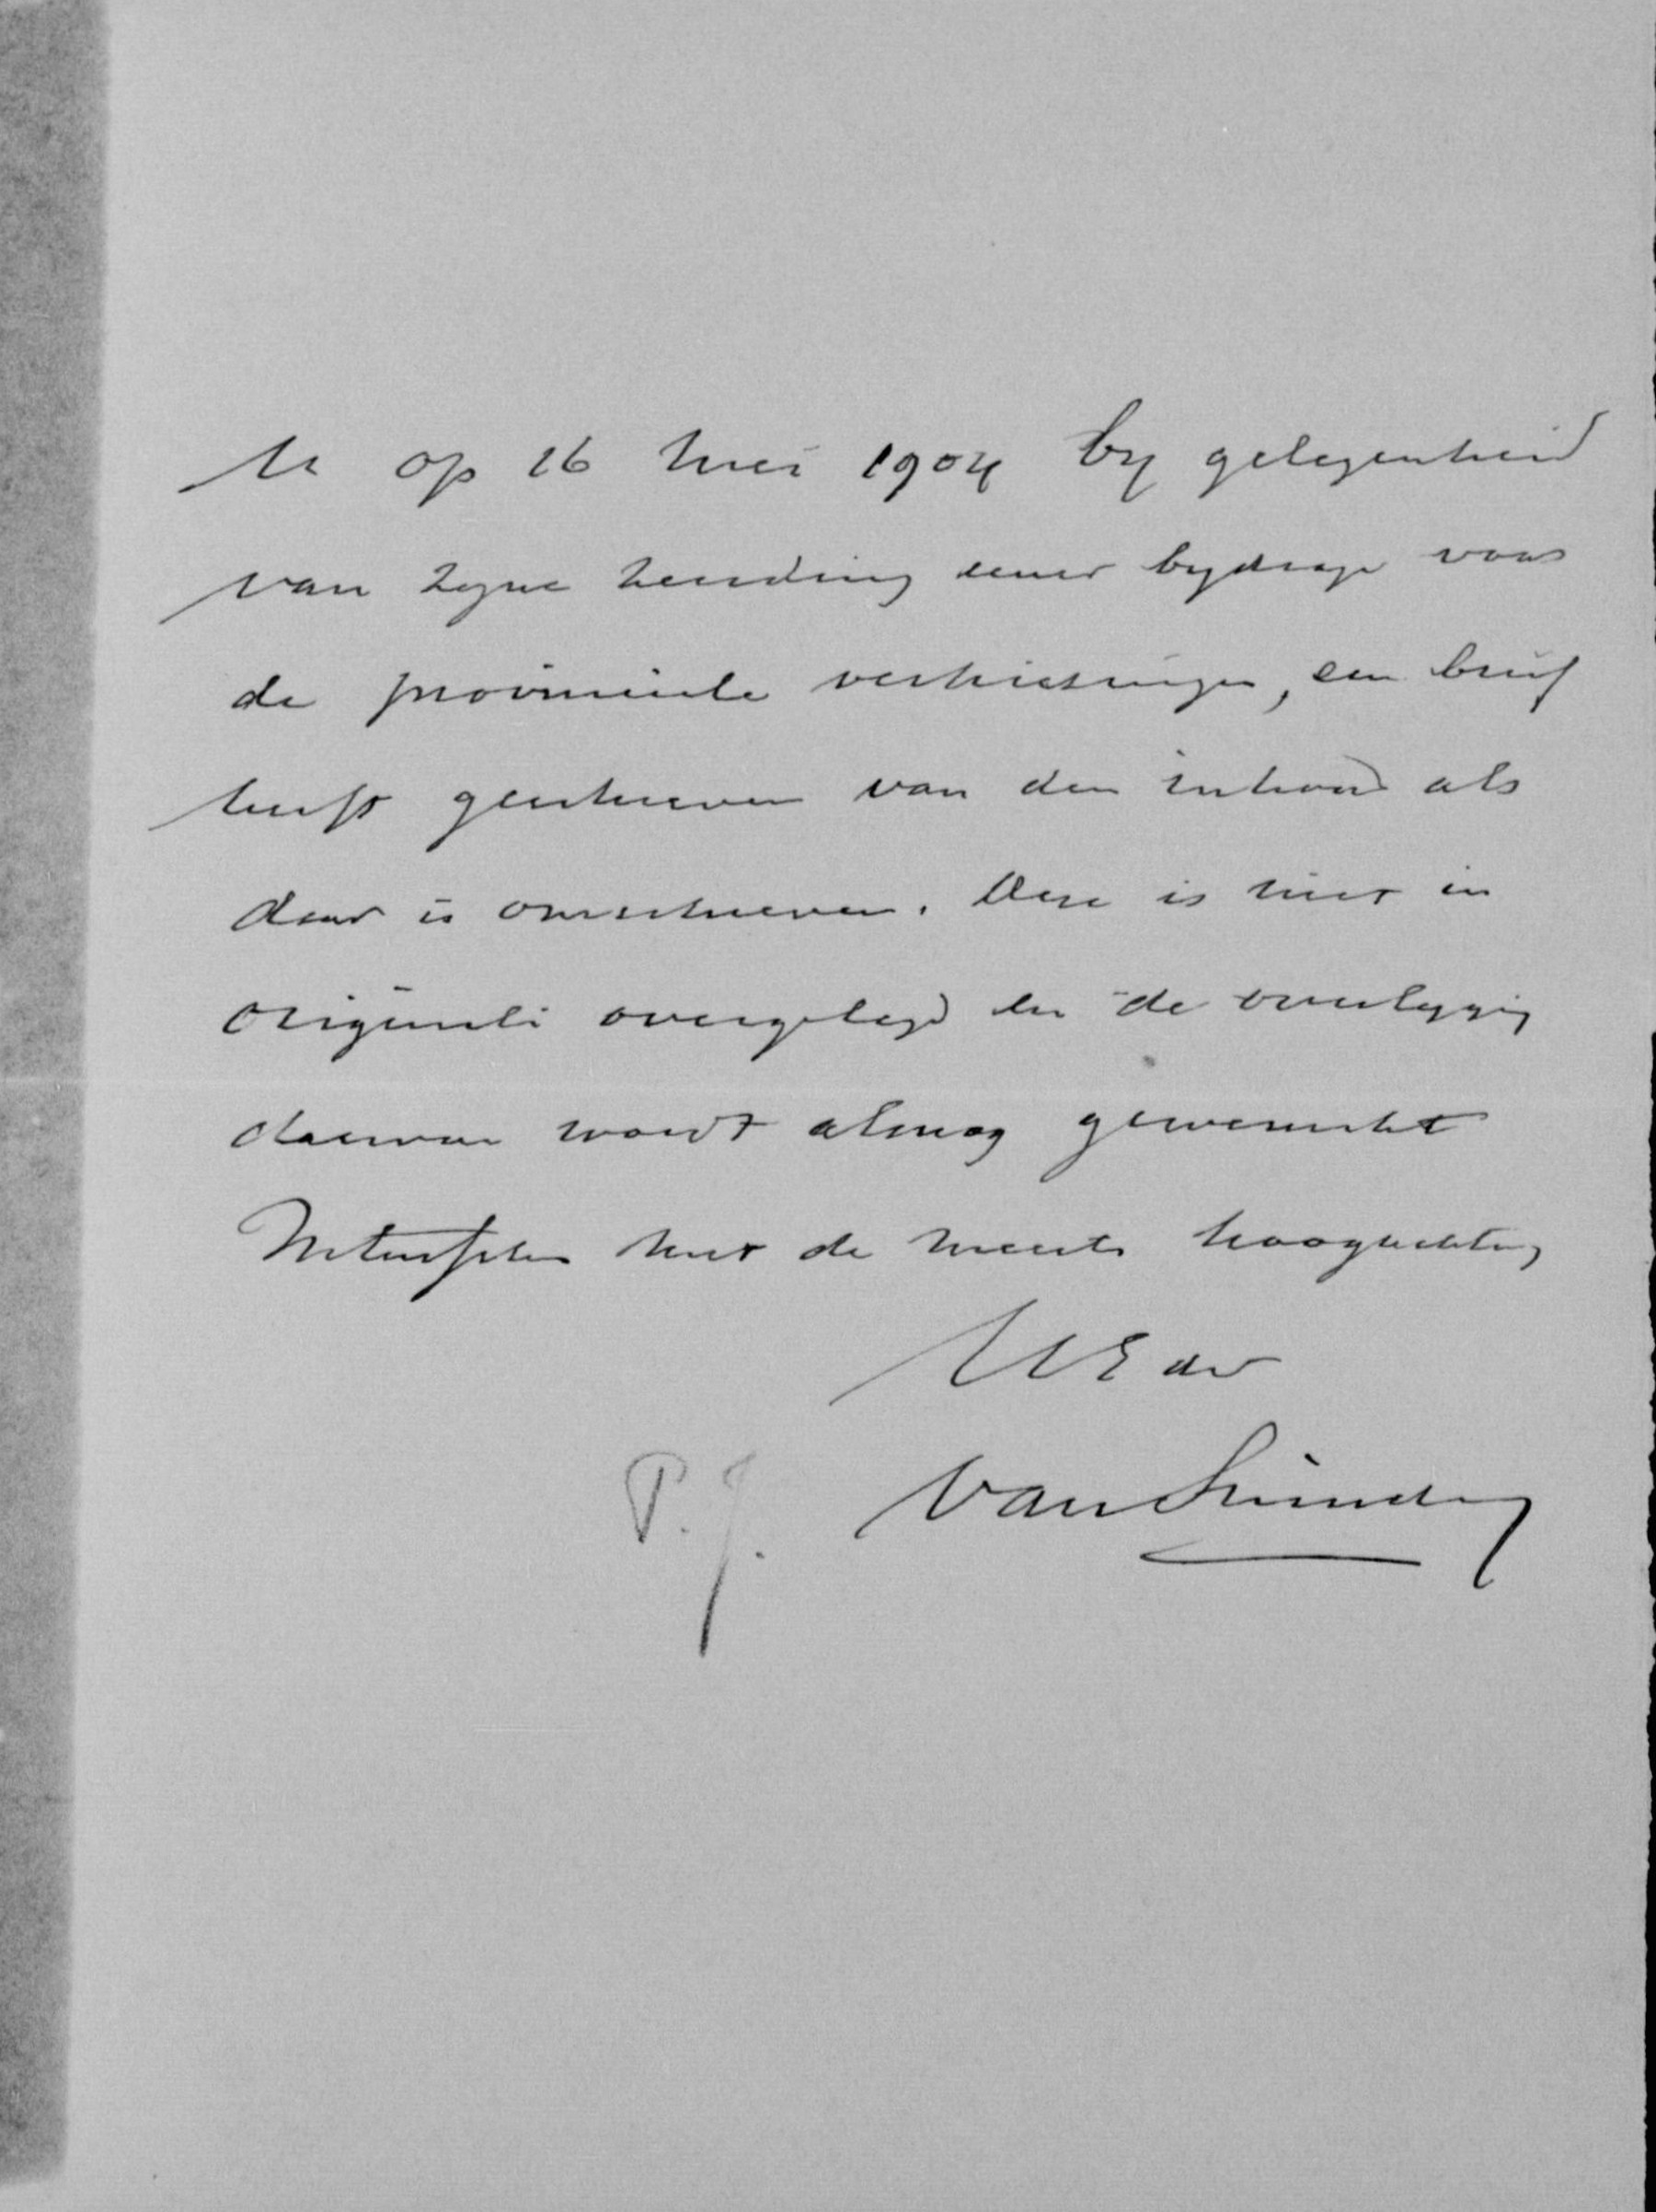 U op 16 Mei 1904 by gelegenheid
van zyne zending eener bydrage voor
de provinciale verkiezingen, een brief
heeft geschreven van den inhoud als
daar is omschreven. Deze is hier in
originali overgelegd en de overlegging
daarvan wordt alsnog gewenscht
Intusschen met de meeste hoogachting
UEdv
P. J. van